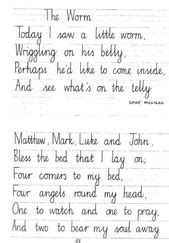 The Worm
Today I saw a little worm,
Wriggling on his belly,
Perhaps he'd like to come inside,
And see what's on the telly
SPIKE MILLIGAN
Matthew, Mark, Luke and John,
Bless the bed that I lay on;
Four corners to my bed,
Four angels round my head,
One to watch and one to pray,
And two to bear my soul away